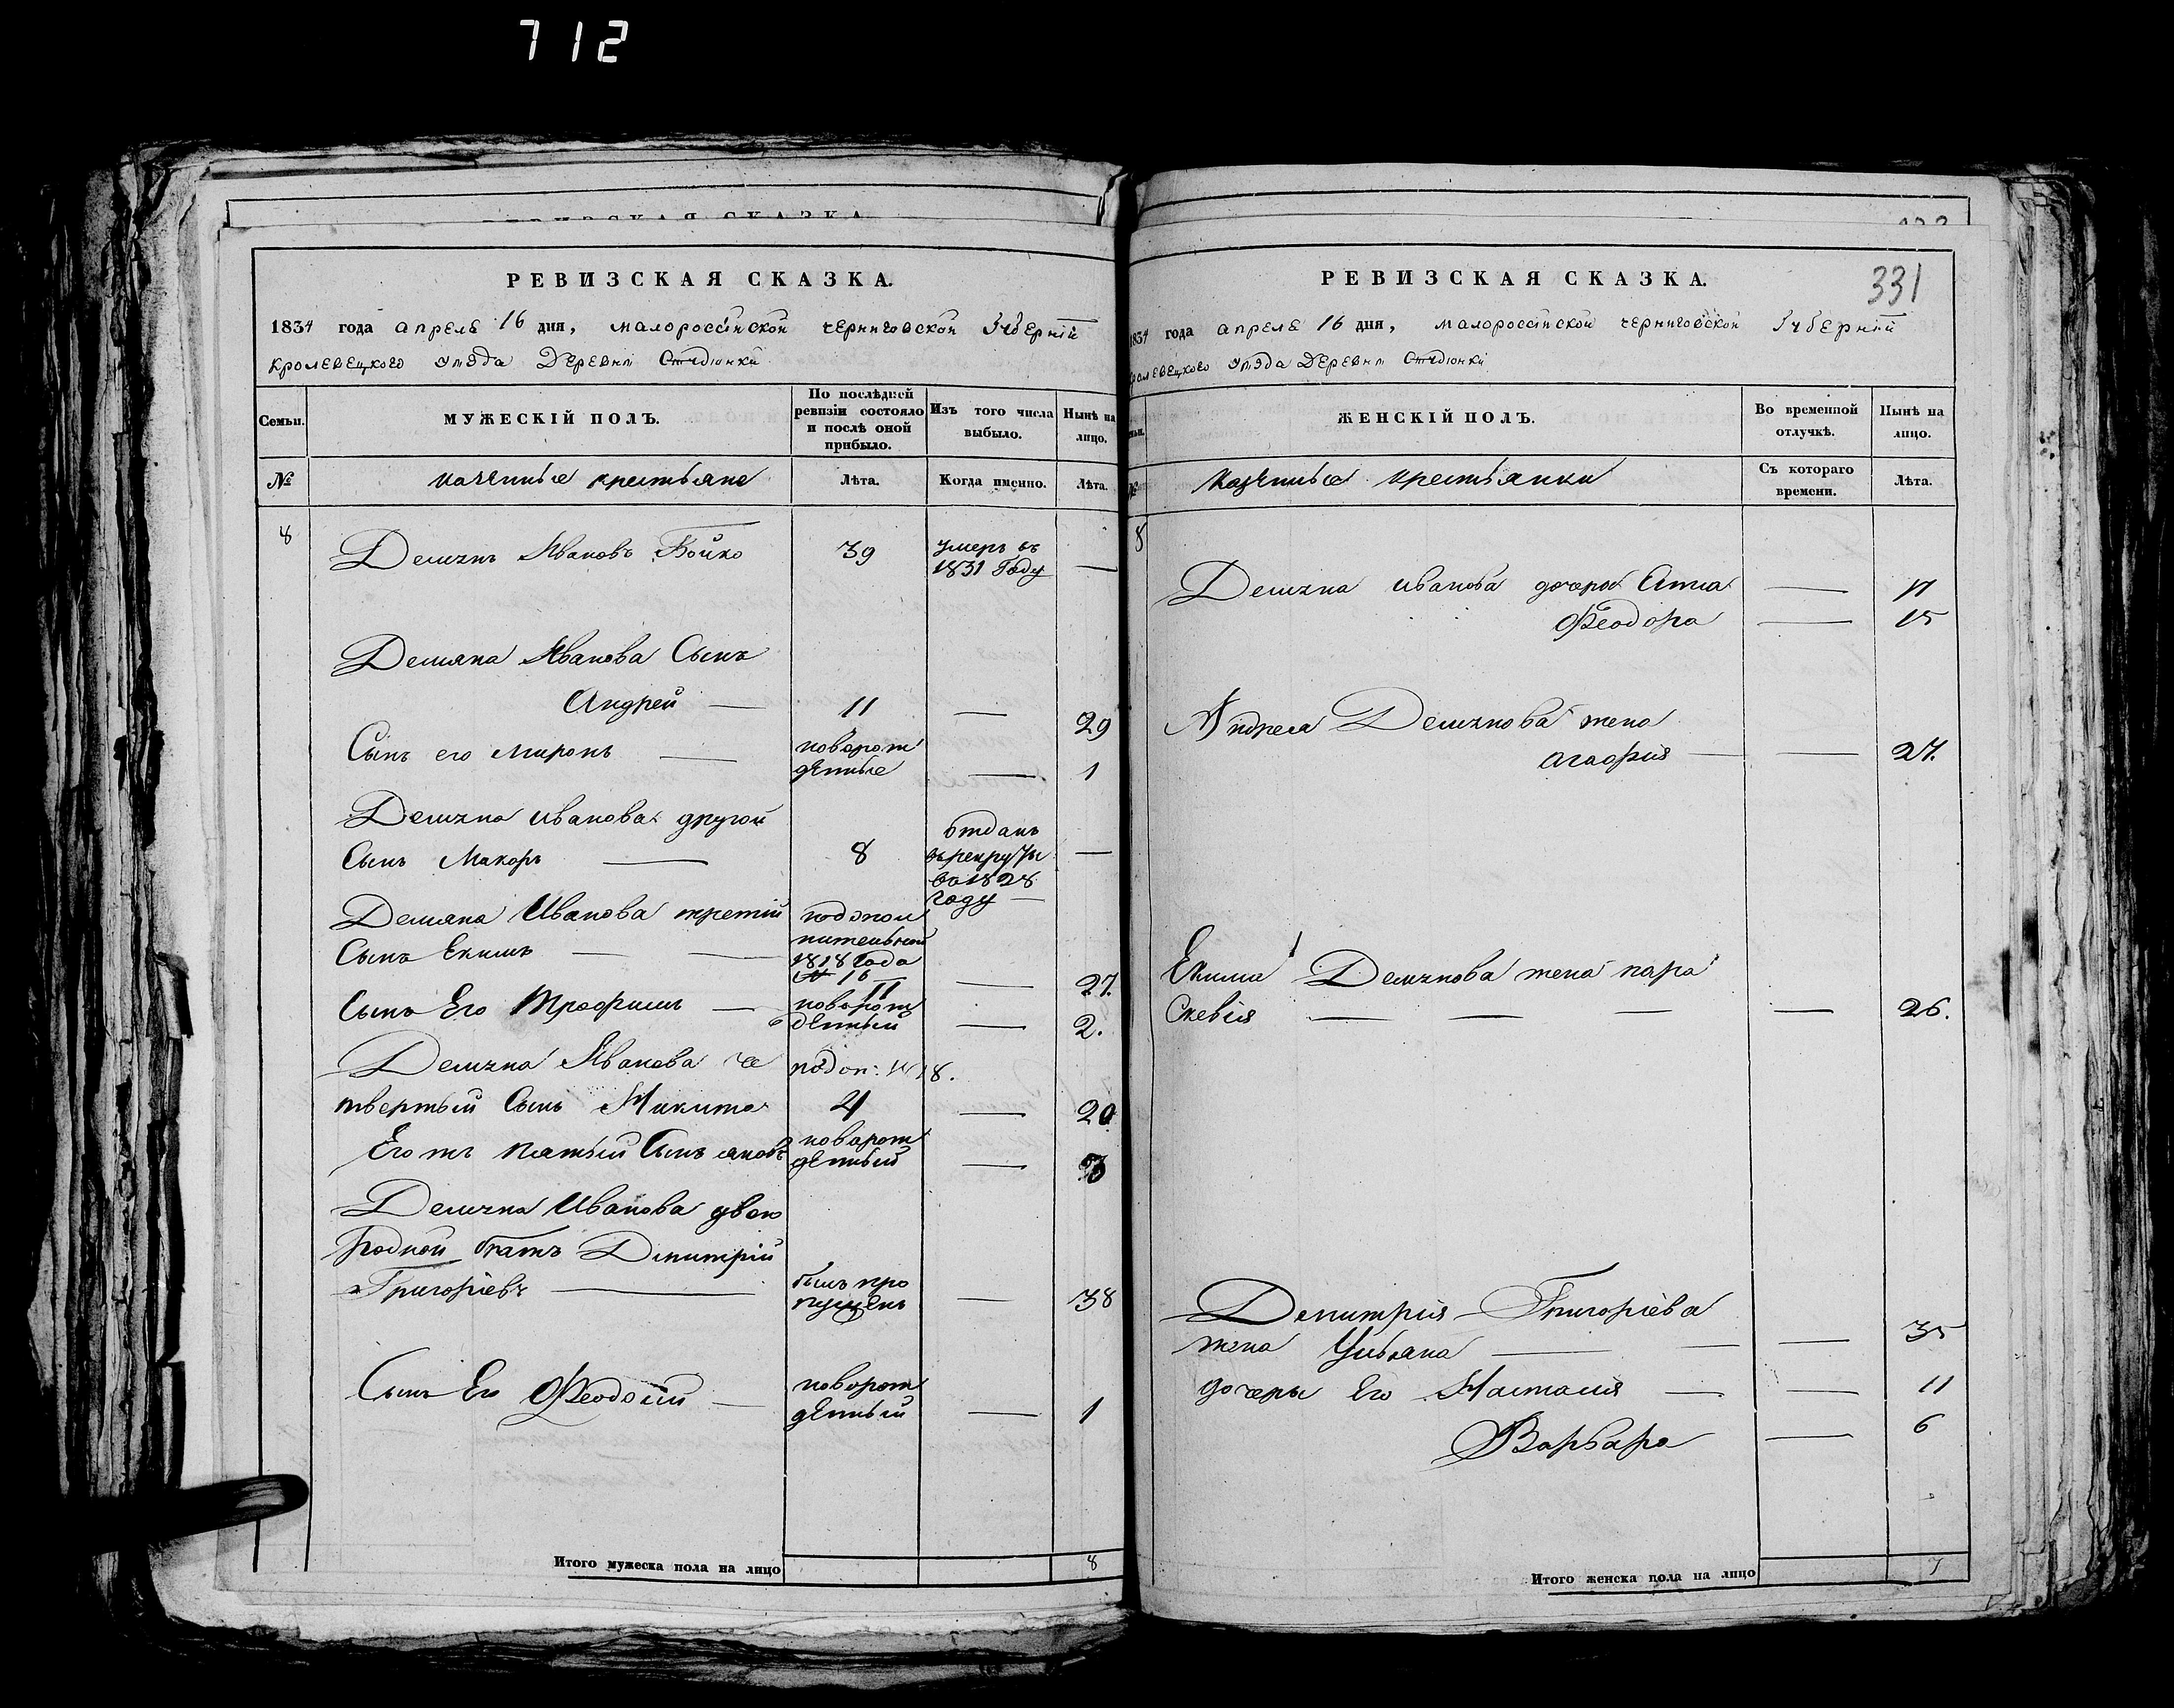 712
РЕВИЗСКАЯ СКАЗКА.
1834 года апреля 16 дня, малороссійской черниговской губерніи
кролевецкого уѣзда Деревни Студіонки
Семьи.
МУЖЕСКІЙ ПОЛЪ.
По послѣдней ревизіи состояло и послѣ оной прибыло.
Изъ того числа выбыло.
Нынѣ на лицо.
№
казенные крестьяне
Лѣта.
Когда именно.
Лѣта.
8
Демянъ Ивановъ Бойко 39 умеръ въ
1831 Году —
Демяна Иванова Сынъ
Андрей — 11 — 29
Сынъ его Миронъ — новорож
денные — 1
Демяна Иванова другой
Сынъ Макаръ — 8 отданъ
въ рекруты —
во 1828
году —
Демяна Иванова третій
Сынъ Екимъ — —
1818 года
11 — 27.
Сынъ Его Трофимъ — новорож
денный — 2.
Демяна Иванова че
твертый Сынъ Никита подоп: 1818.
4 — 20
Его жъ пятый Сынъ яковъ новорож
денный —
Демяна Иванова двою
родной братъ Дмитрій
Григоріевъ — былъ про
пущенъ — 38
Сынъ Его Феодосій — новорож
денный — 1
Итого мужеска пола на лицо 8
РЕВИЗСКАЯ СКАЗКА.
331
1834 года апреля 16 дня, малороссійской черниговской губерніи
кролевецкого уѣзда Деревни Студіонки
ЖЕНСКІЙ ПОЛЪ.
Во временной отлучкѣ.
Нынѣ на лицо.
№
казенные крестьянки
Съ котораго времени.
Лѣта.
8
Демяна иванова дочери Анна —
Феодора — 15
Андрея Демянова жена
агафия — — 27.
Екима Демянова жена пара
скевія — — — — 26.
Дмитрія Григоріева
жена Ульяна — — — 35
дочери Его Настасия — — 11
Варвара — 6
Итого женска пола на лицо 7